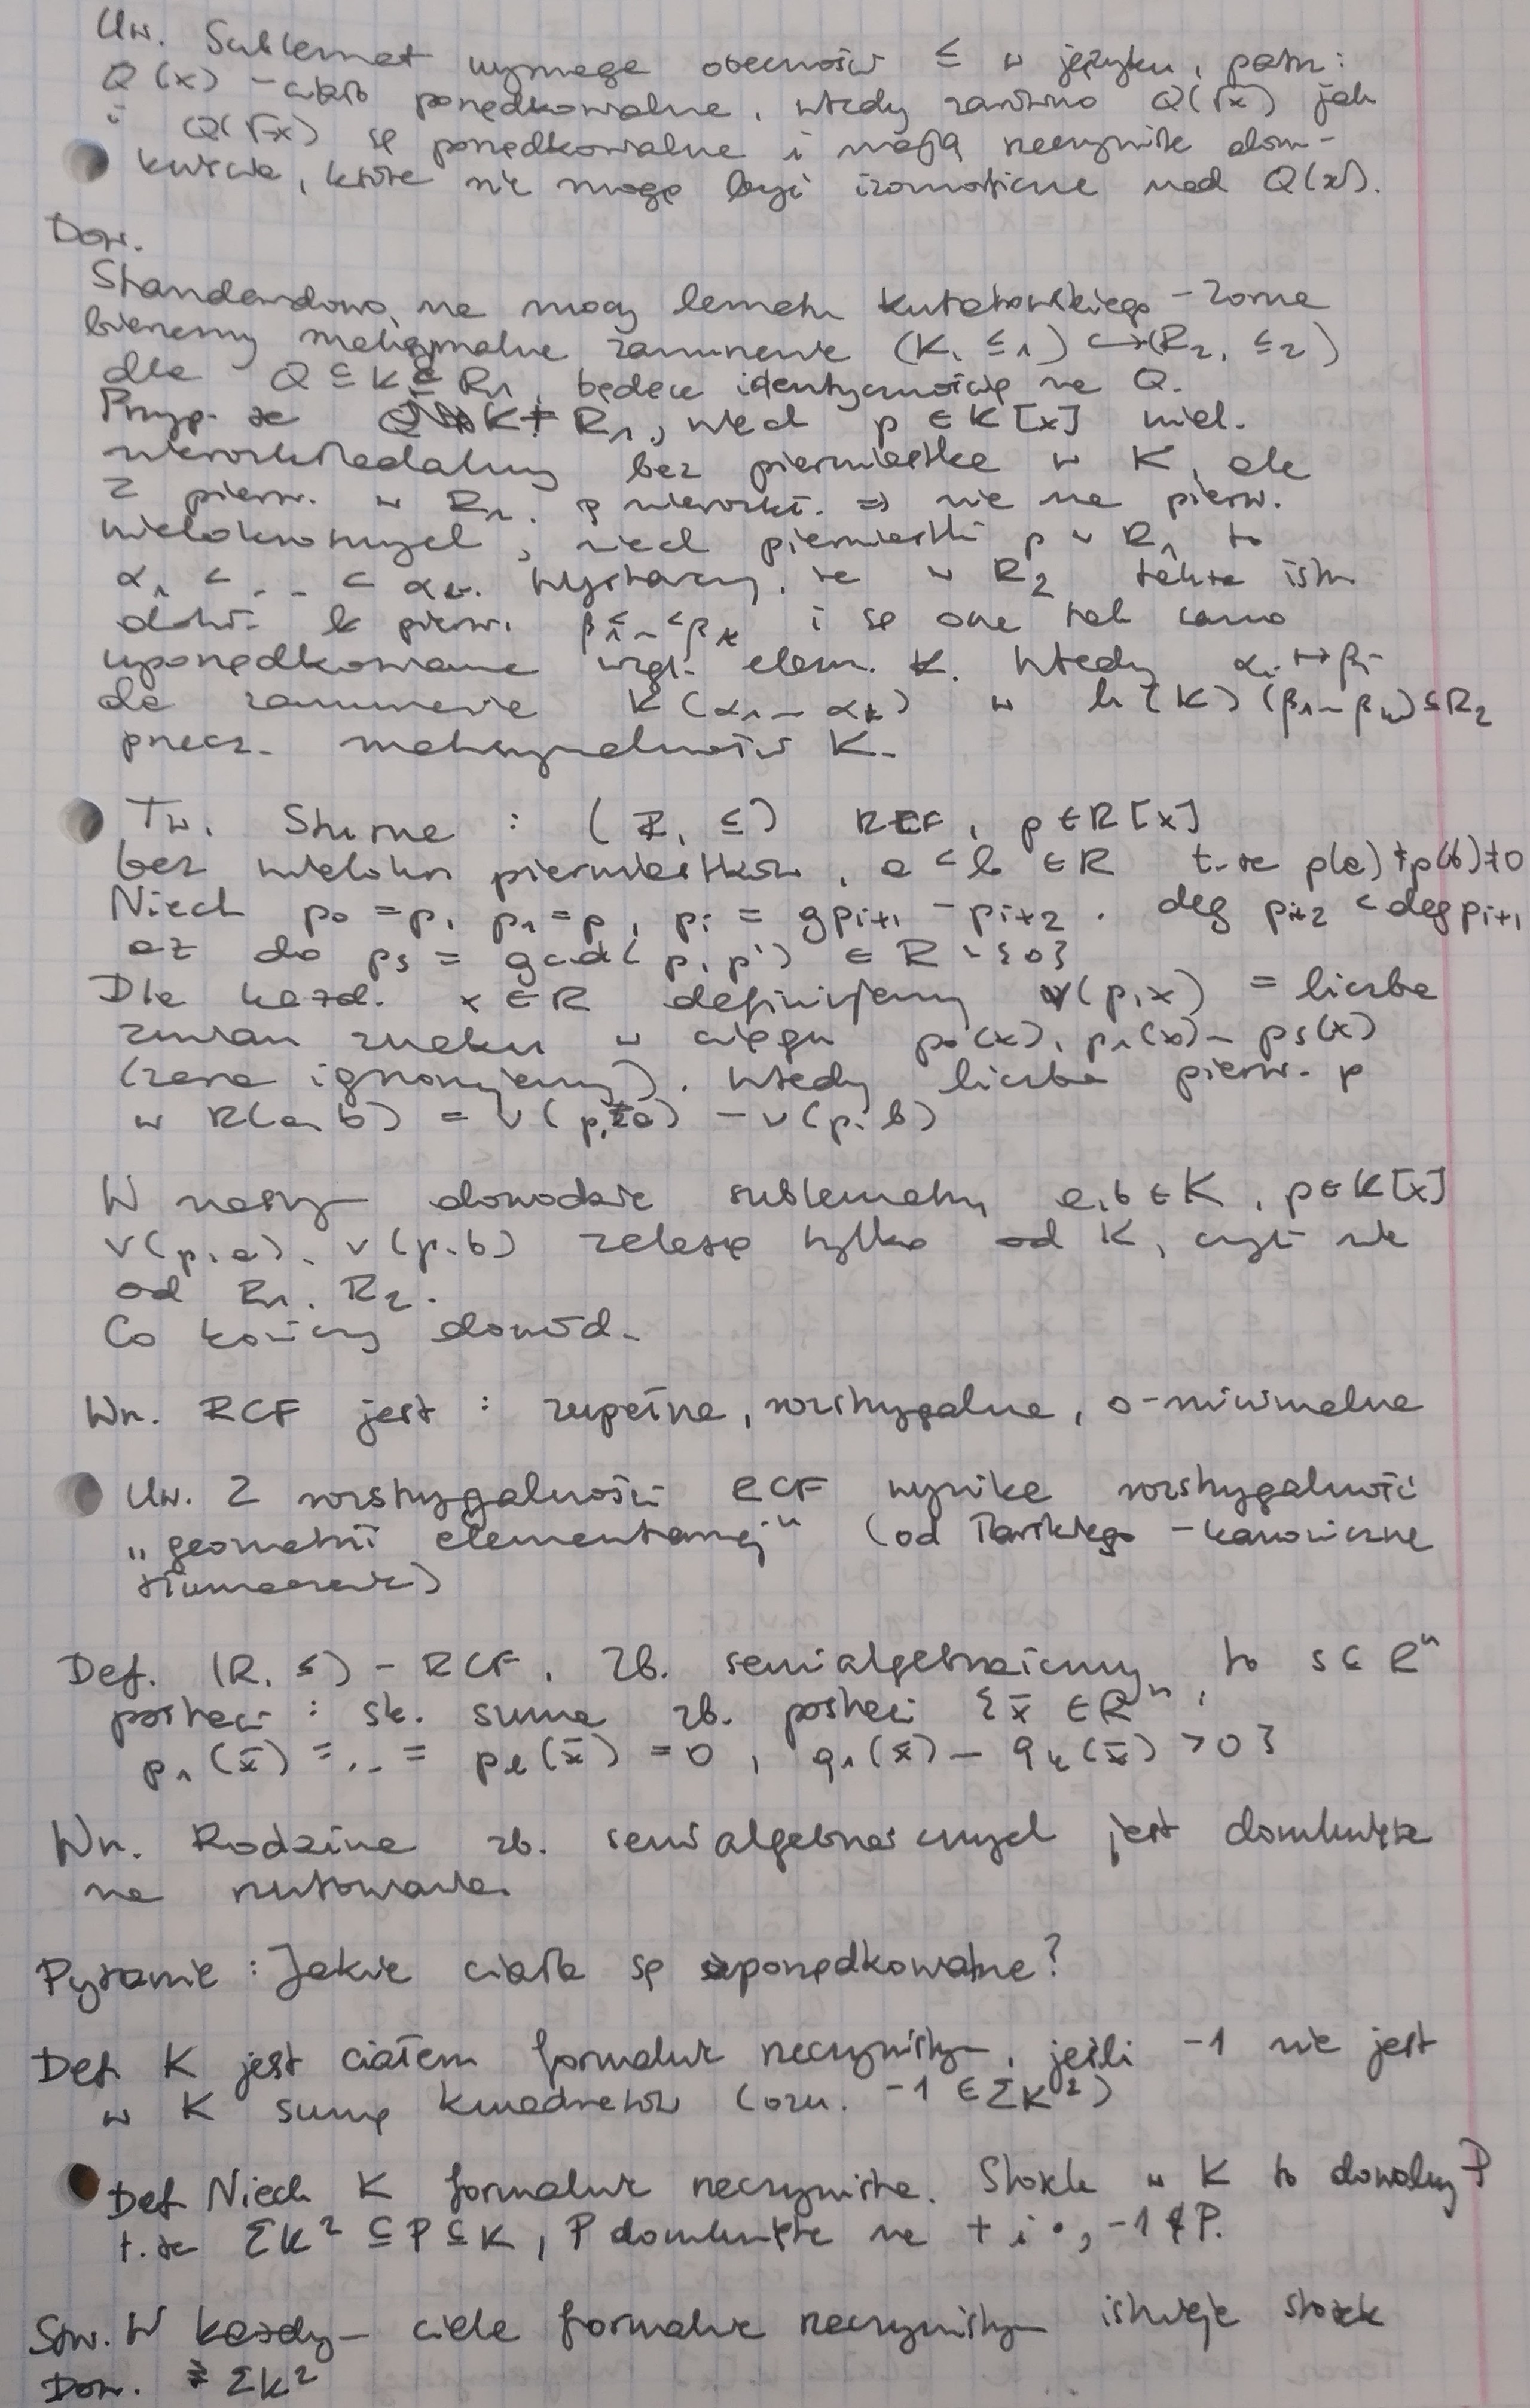 Uw. Sublemat wymaga obecności ≤ w języku, patrz:
Q(x) - ciało porządkowalne, wtedy zarówno Q(√x) jak
i Q(√-x) są porządkowalne i mają rzeczywiste dom-
knięcia, które nie mogą być izomorficzne nad Q(x).
Dow.
Standardowo, na mocy lematu Kuratowskiego - Zorna
bierzemy maksymalne zanurzenie (K, ≤₁) ↪ (R₂, ≤₂)
dla Q ⊆ K ⊆ R₁, będące identycznością na Q.
Przyp. że K ≠ R₁, niech p ∈ K[x] wiel.
nierozkładalny bez pierwiastka w K, ale
z pierw. w R₁. p nierozkł. ⇒ nie ma pierw.
wielokrotnych, niech pierwiastki p w R₁ to
α₁ < ... < αₖ. Wystarczy, że w R₂ także istn.
dokł. k pierw. β₁ < - < βₖ i są one tak samo
uporządkowane wzgl. elem. K. Wtedy αᵢ ↦ βᵢ
da zanurzenie K(α₁ - αₖ) w h[K](β₁ - βₖ) ⊆ R₂
przecz. maksymalności K.
Tw. Sturma : (R, ≤) RCF, p ∈ R[x]
bez wielokr pierwiastków, a < b ∈ R t. że p(a) ≠ p(b) ≠ 0
Niech p₀ = p, p₁ = p, pᵢ = g pᵢ₊₁ - pᵢ₊₂. deg pᵢ₊₂ < deg pᵢ₊₁
aż do pₛ = gcd(p, p') ∈ R \ {0}
Dla każd. x ∈ R definiujemy v(p,x) = liczba
zmian znaku w ciągu p₀(x), p₁(x) - pₛ(x)
(zera ignorujemy). Wtedy liczba pierw. p
w R(a, b) = v(p, a) - v(p, b)
W naszym dowodzie sublematu a, b ∈ K, p ∈ K[x]
v(p, a), v(p, b) zależą tylko od K, czyli nie
od R₁, R₂.
Co kończy dowód.
Wn. RCF jest : zupełna, rozstrzygalna, o-minimalna
Uw. Z rozstrzygalności RCF wynika rozstrzygalność
„geometrii elementarnej" (od Tarskiego - kanoniczne
tłumaczenie)
Def. (R, ≤) - RCF. Zb. semialgebraiczny to S ⊆ Rⁿ
postaci : sk. suma zb. postaci {x̄ ∈ Rⁿ :
p₁(x̄) = .. = pₗ(x̄) = 0, q₁(x̄) - qₖ(x̄) > 0}
Wn. Rodzina zb. semialgebraicznych jest domknięta
na rzutowania.
Pytanie : Jakie ciała są uporządkowalne?
Def K jest ciałem formalnie rzeczywistym, jeśli -1 nie jest
w K sumą kwadratów (ozn. -1 ∈ ΣK²)
Def Niech K formalnie rzeczywiste. Stożek w K to dowolny P
t. że ΣK² ⊆ P ⊆ K, P domknięte na + i •, -1 ∉ P.
Stw. W każdym ciele formalnie rzeczywistym istnieje stożek
Dow. ΣK²